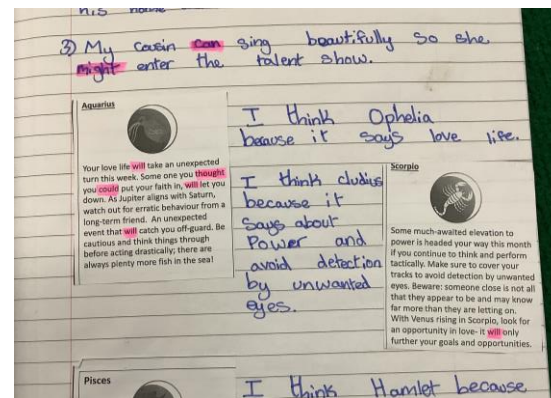 his
3) My cousin can sing beautifully so she
might enter the talent show.
Aquarius
Your love life will take an unexpected
turn this week. Some one you thought
you could put your faith in, will let you
down. As Jupiter aligns with Saturn,
watch out for erratic behaviour from a
long-term friend. An unexpected
event that will catch you off-guard. Be
cautious and think things through
before acting drastically; there are
always plenty more fish in the sea!
I think Ophelia
because it says love life.
I think cludius
because it
says about
Power and
avoid detection
by unwanted
eyes.
Scorpio
Some much-awaited elevation to
power is headed your way this month
if you continue to think and perform
tactically. Make sure to cover your
tracks to avoid detection by unwanted
eyes. Beware: someone close is not all
that they appear to be and may know
far more than they are letting on.
With Venus rising in Scorpio, look for
an opportunity in love- it will only
further your goals and opportunities.
Pisces
I think Hamlet because